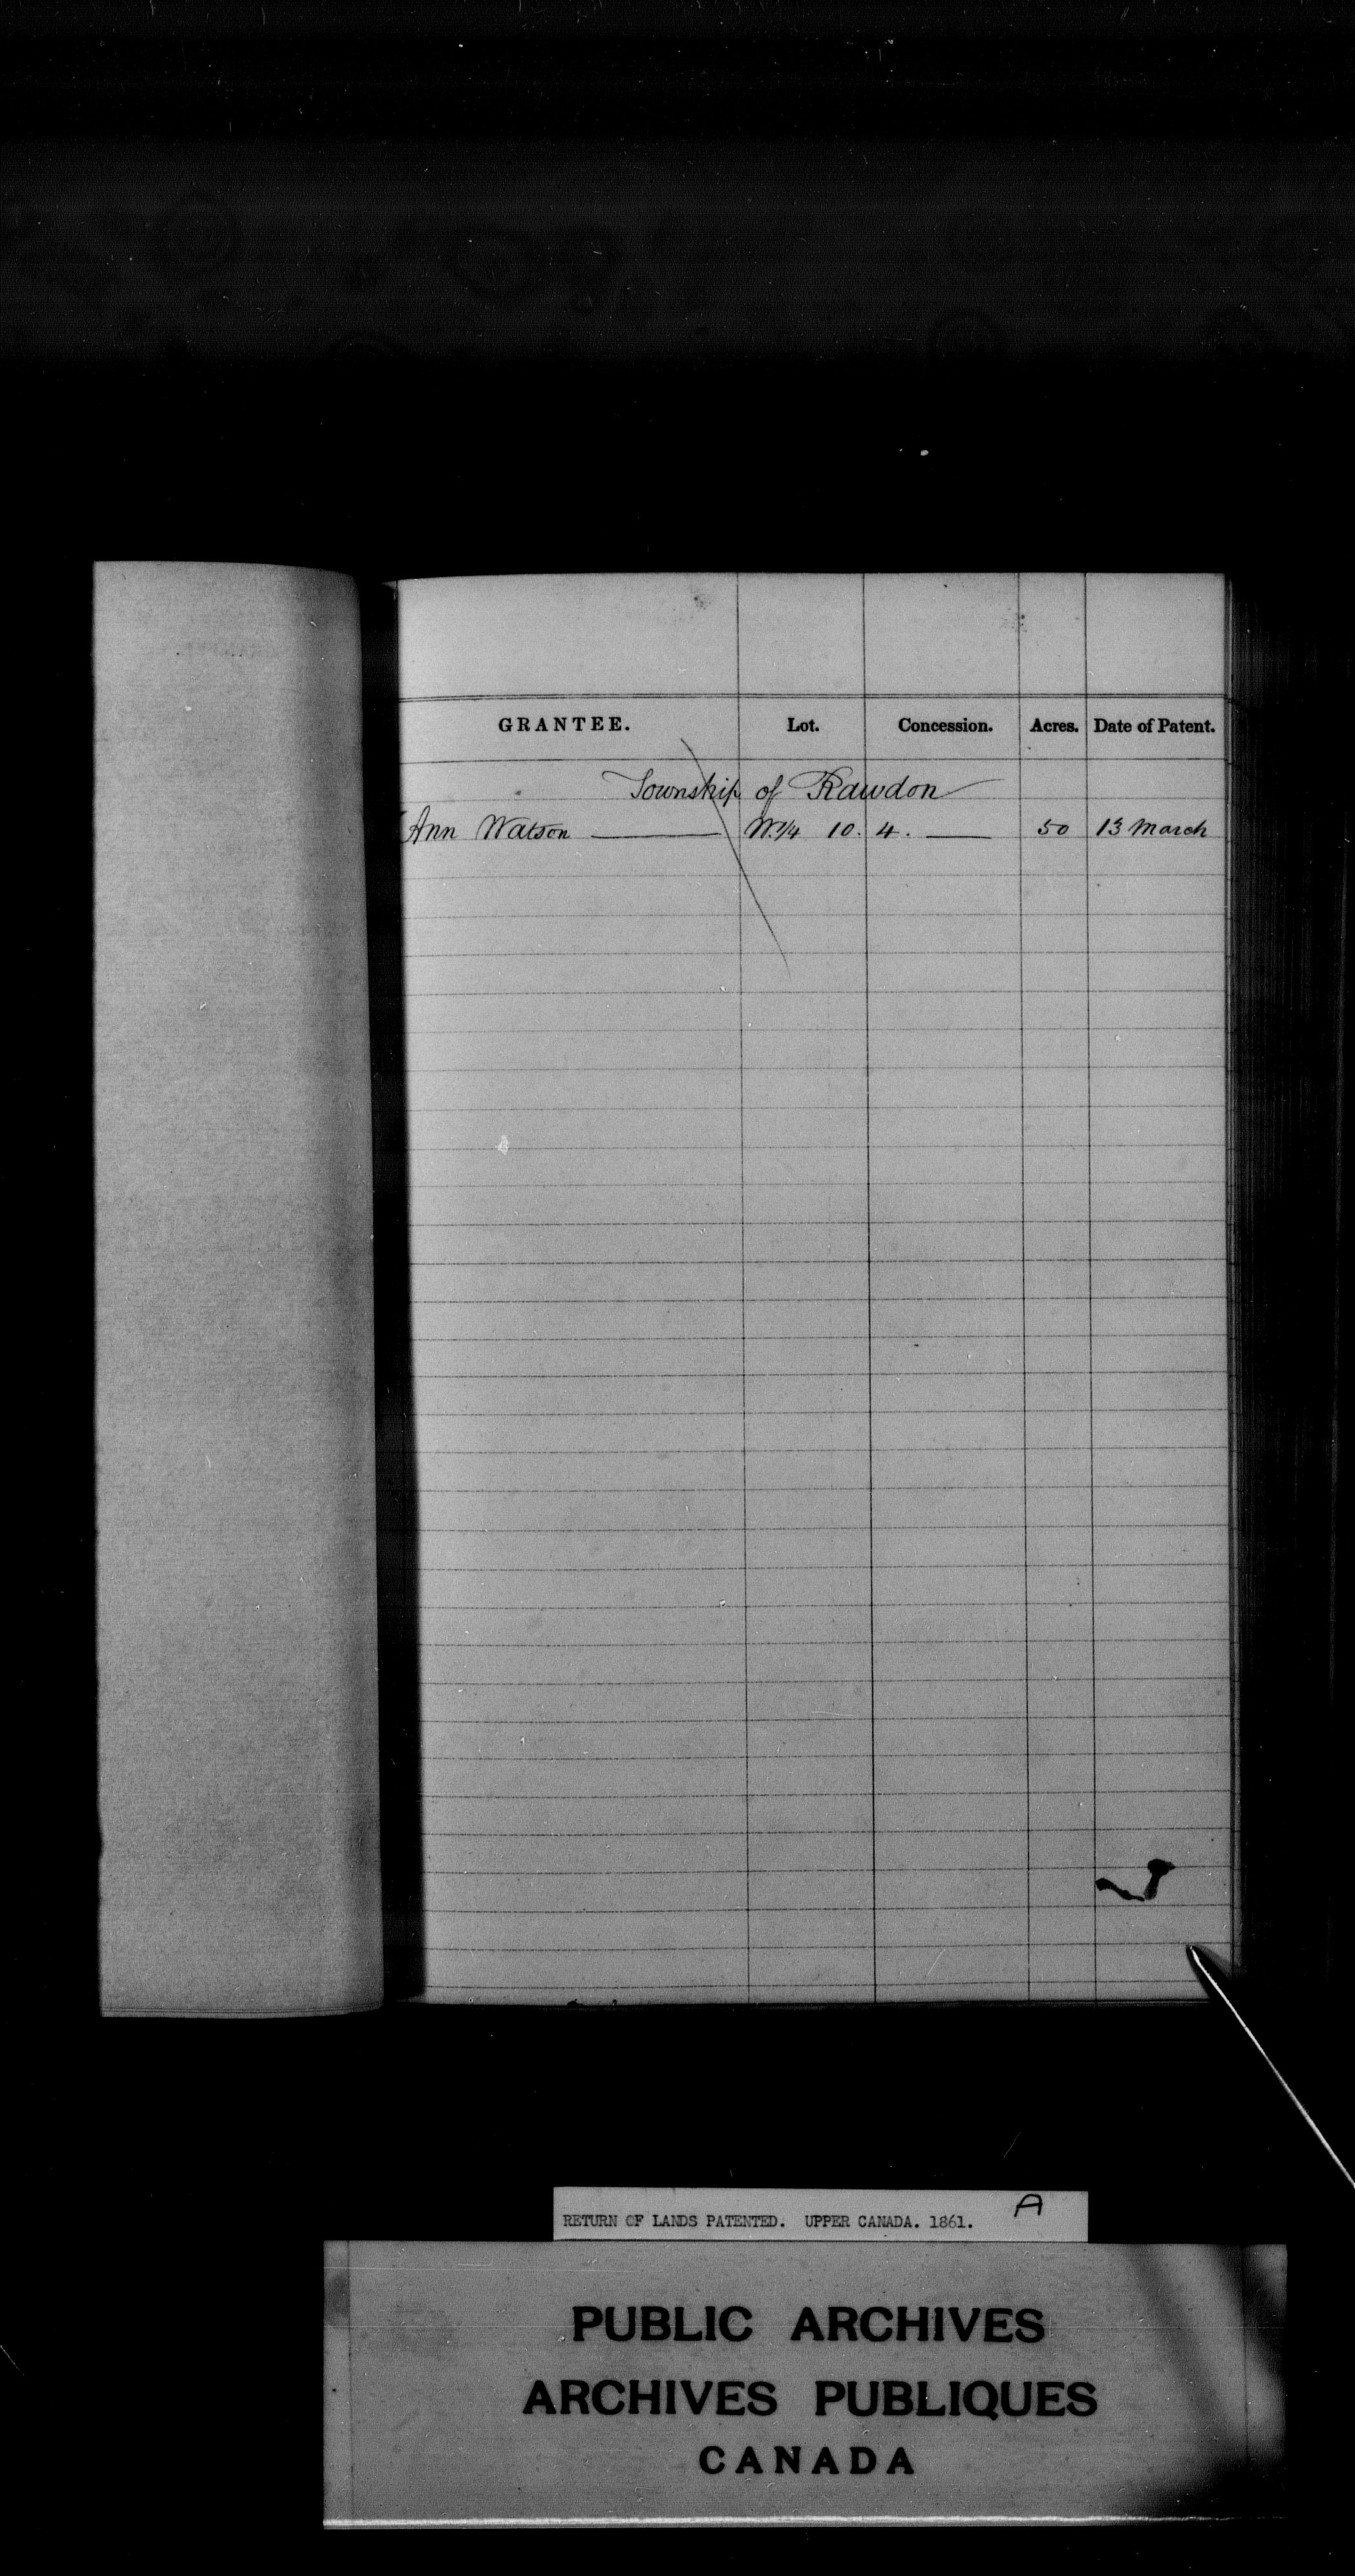 GRANTEE. Lot. Concession. Acres. Date of Patent.
Township of Rawdon
Ann Watson W.1/4 10. 4. 50 13 March
RETURN OF LANDS PATENTED. UPPER CANADA. 1861. A
PUBLIC ARCHIVES
ARCHIVES PUBLIQUES
CANADA